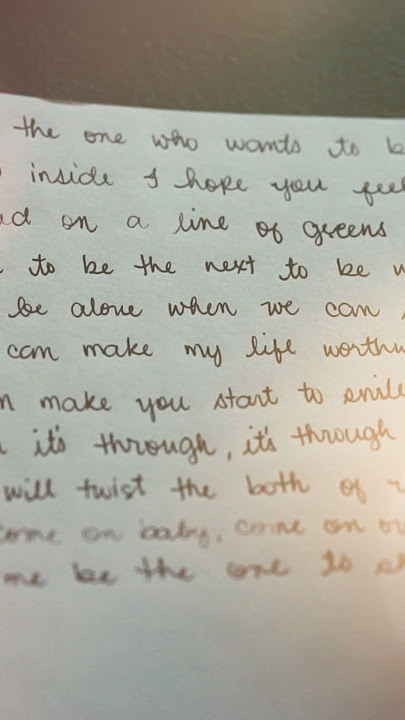 the one who wants to b
inside I hope you feel
d on a line of greens
to be the next to be w
be alone when we can
can make my life worthw
make you start to smile
it's through, it's through
will twist the both of
come on baby, come on ov
me be the one to